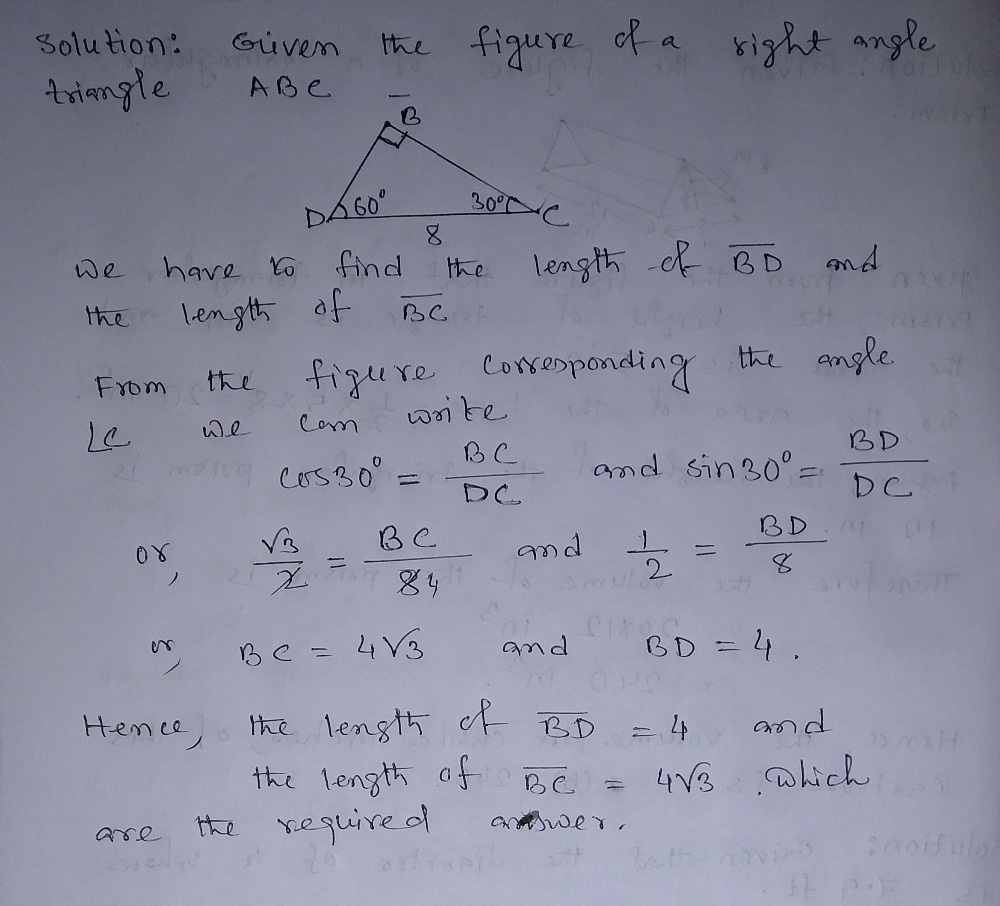 Solution: Given the figure of a right angle
triangle ABC –
B
D 60° 30° C
8
We have to find the length of B̅D̅ and
the length of B̅C̅
From the figure corresponding the angle
∠C we can write
cos30° = BC/DC and sin30° = BD/DC
or, √3/2 = BC/8 4 and 1/2 = BD/8
or, BC = 4√3 and BD = 4.
Hence, the length of B̅D̅ = 4 and
the length of B̅C̅ = 4√3 . which
are the required answer.